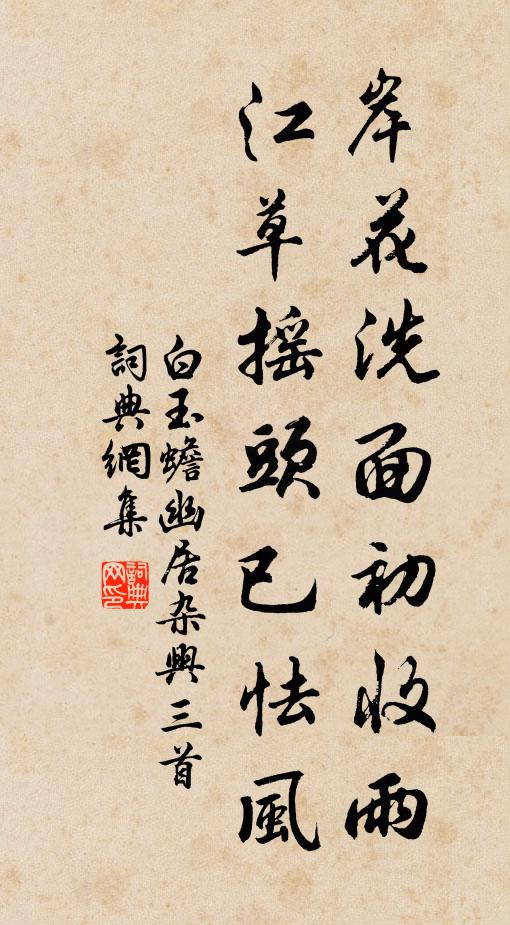 岸花洗面初收雨
江草摇頭已怯風
白玉蟾幽居杂興三首
詞典網集
詞典网印